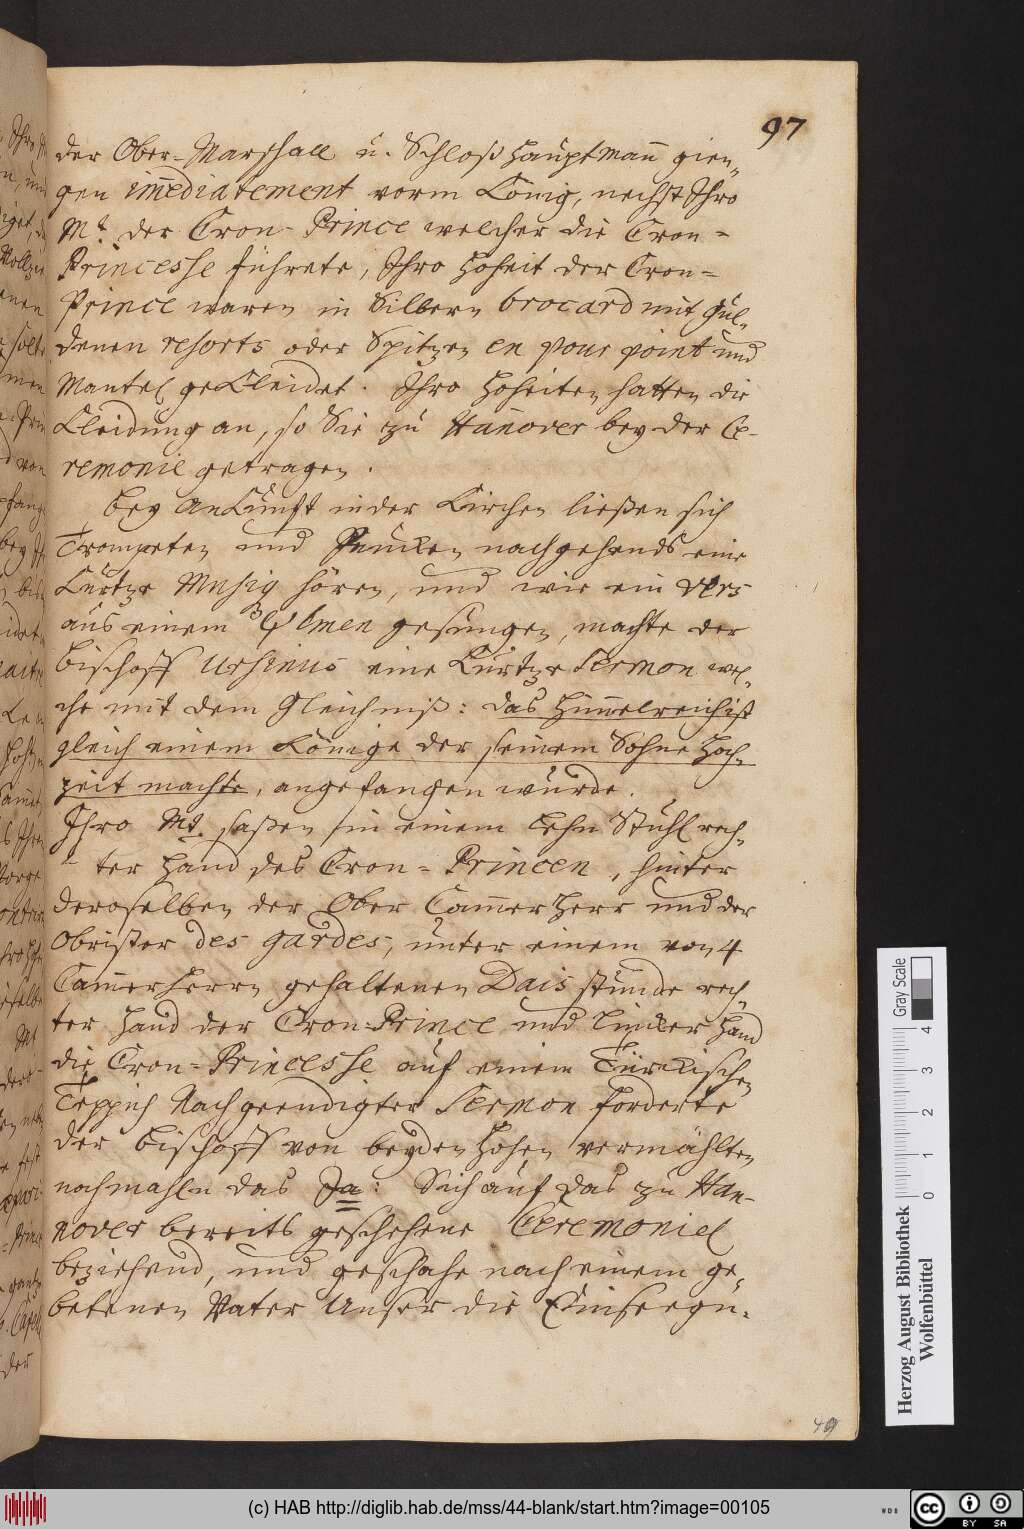 97
der Ober-Marshall u. Schloß Hauptmañ gien„
gen im̃ediatement vorm König, nechst Ihro
Mt. der Cron-Prince welcher die Cron-
Princesse führete, Ihro Hoheit der Cron-
Prince waren in Silbern brocard mit Gül„
denen resorts oder Spitzen en pour point und
Mantel gekleidet. Ihro Hoheiten hatten die
Kleidung an, so Sie zu Hañover bey der Ce-
remonie getragen.
Bey Ankunft in der Kirchen ließen sich
Trompeten und Paucken nachgehends eine
Kurtze Musiq hören, und wie ein Vers
aus einem Psalmen gesungen, machte der
Bischoff Ursinus eine Kurtze Sermon wel„
che mit dem Gleichniß: das Him̃elreich ist
gleich einem Könige der seinem Sohne Hoch„
zeit machte, angefangen wurde.
Ihro Mt. saßen in einem Lehn Stuhl rech„
ter Hand des Cron-Princen, hinter
deroselben der Ober Cam̃er Herr und der
Obrister des gardes, unter einem von 4
Cam̃erherrn gehaltenen Dais stunde rech„
ter Hand der Cron-Prince und lincker Hand
die Cron-Princesse auf einem Türckischen
Teppich Nach geendigter Sermon forderte
der Bischoff von beyden Hohen vermählten
nochmahln das Ja: Sich auf das zu Han-
nover bereits geschehene Ceremoniel
beziehend, und geschahe nach einem ge„
betenen Vater Unser die Einseegn„
49
Herzog August Bibliothek
Wolfenbüttel
0 1 2 3 4
Gray Scale
(c) HAB http://diglib.hab.de/mss/44-blank/start.htm?image=00105
WDB
cc BY SA